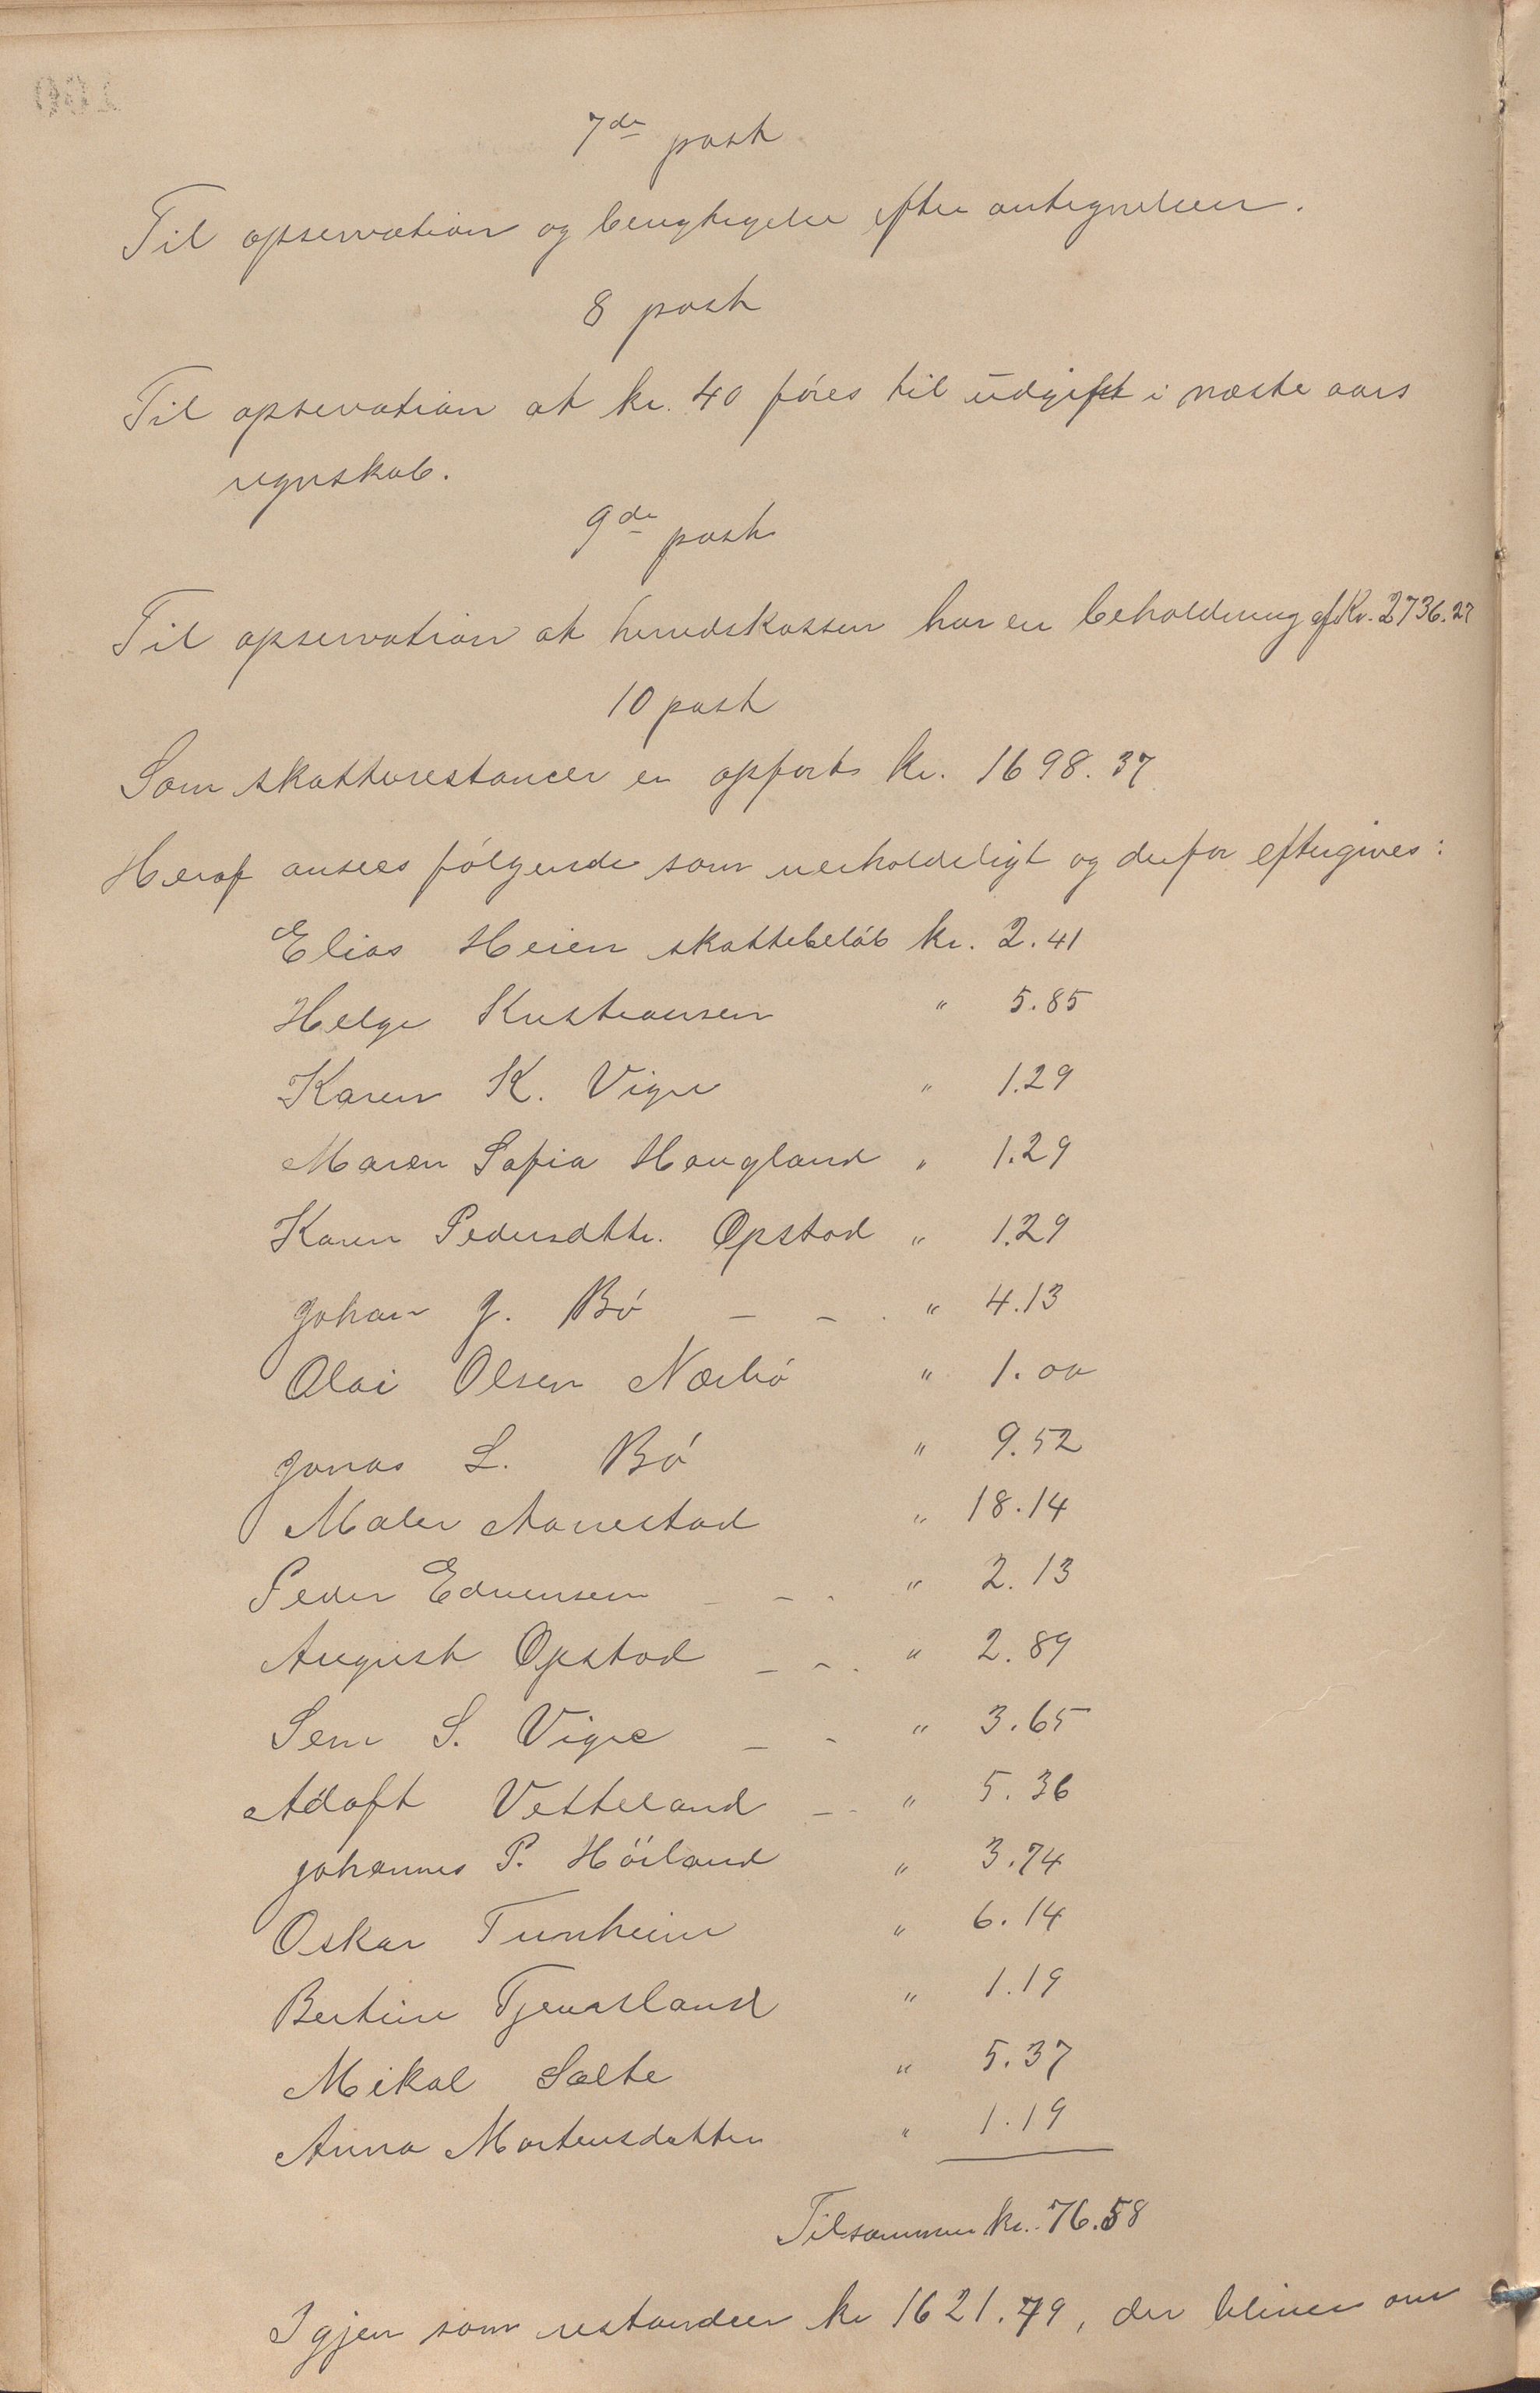 7de post
Til opservation og berigtigelse efter antegnelsen.
8 post
Til opservation at kr. 40 föres til udgift i næste aars
regnskab.
9de post
Til opservation at herredskassen har en beholdning af Kr. 2736.27
10 post
Som skatterestancer er opfört kr. 1698.37
Heraf ansees fölgende som uerholdeligt og derfor eftergives:
Elias Heien skattebelöb kr. 2.41
Helge Kristiansen " 5.85
Karen K. Vigre " 1.29
Maren Sofia Haugland " 1.29
Karen Pedersdttr. Opstad " 1.29
Johan J. Bö — - . " 4.13
Olai Olsen Nærbö " 1.00
Jonas L. Bö " 9.52
Maler Aanestad " 18.14
Peder Edvensen - - . " 2.13
August Opstad - - . " 2.89
Sem S. Vigre — - " 3.65
Adolft Vetteland - - " 5.36
Johannes P. Höiland " 3.74
Oskar Tunheim " 6.14
Bertine Tjensland " 1.19
Mikal Salte " 5.37
Anna Martensdatter " 1.19
Tilsammen kr. 76.58
Igjen som restandser kr 1621.79, der bliver om